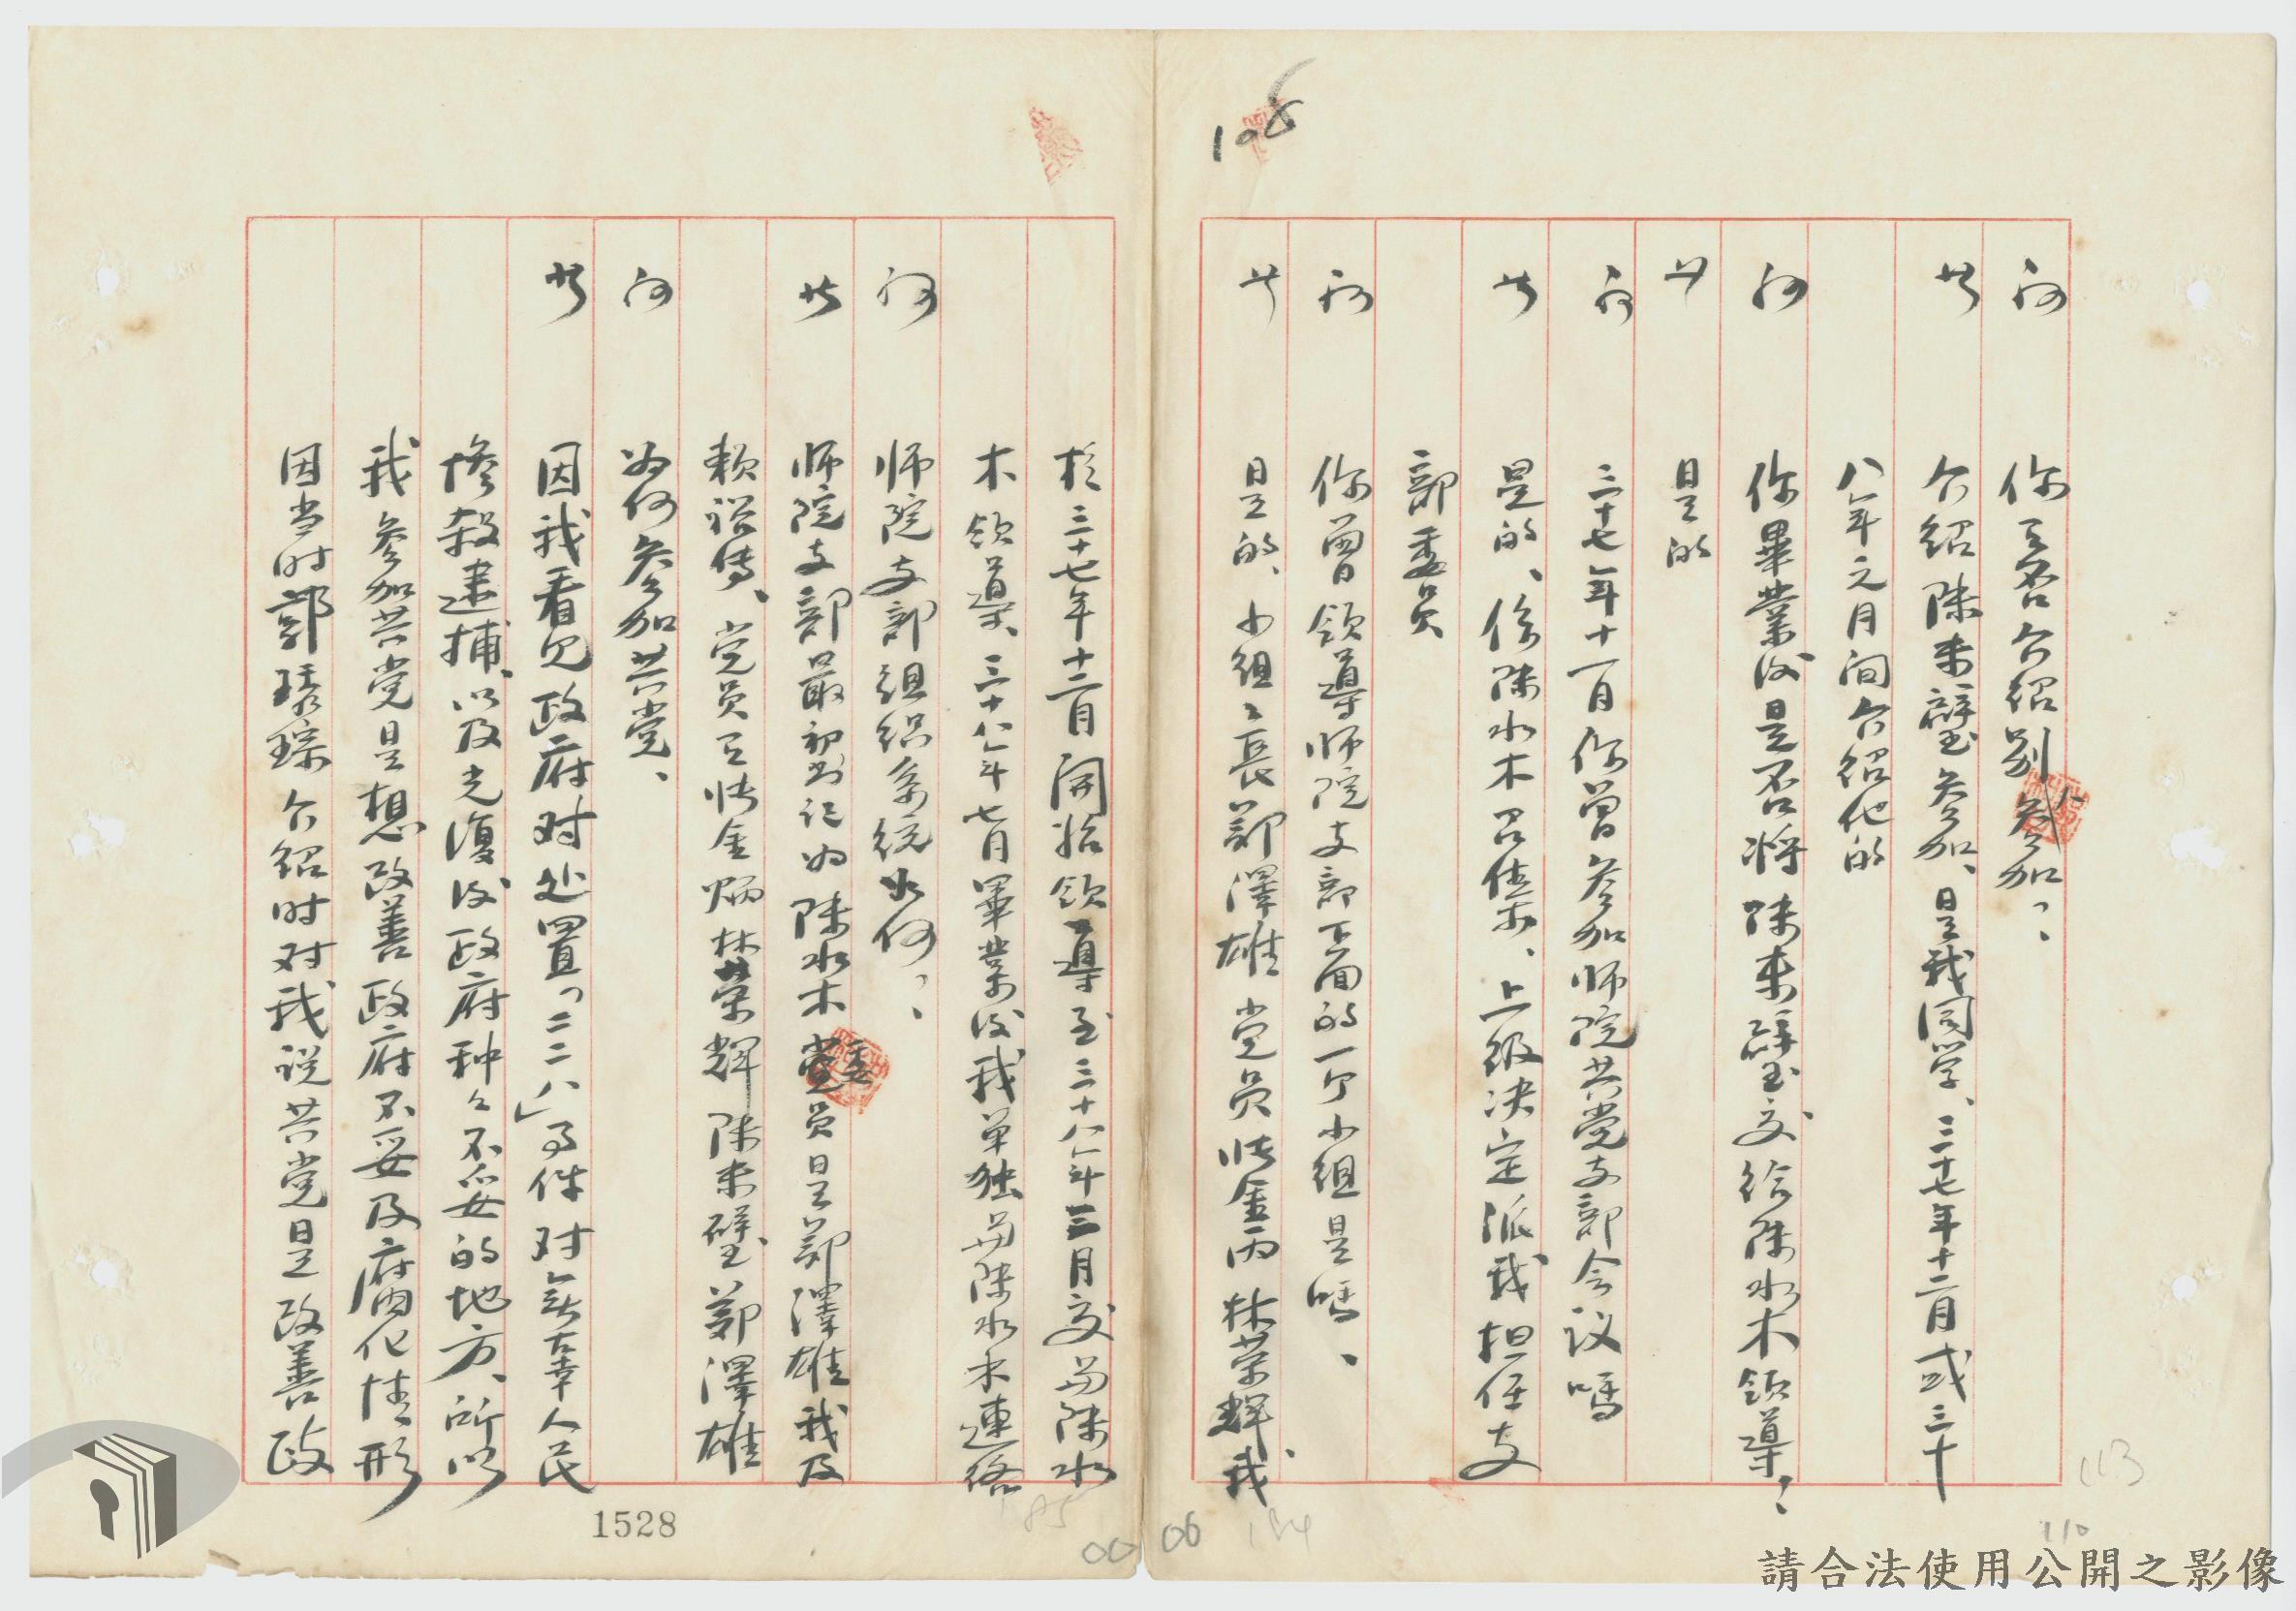 106
问 你可否介绍别人参加?
答 介绍陈来璧参加、是我同学、三十七年十二月或三十
八年元月间介绍他的
问 你畢業後是否將陈来璧交给陈水木领導?
答 是的
问 三十七年十一月你曾参加师院共党支部会议吗
答 是的、係陈水木召集、上级决定派我担任支
部委员
问 你曾领導师院支部下面的一个小组是吗、
答 是的、小组々長鄭澤雄 党员张金丙 林荣輝、我
於三十七年十二月開始领導至三十八年三月交與陈水
木领導、三十八年七月畢業後我单独與陈水木連络
问 师院支部组织系统如何?
答 师院支部最初书记为陈水木 委员是鄭澤雄我及
赖裕傳、党员有张金炳 林荣輝 陈来璧、鄭澤雄
问 为何参加共党、
答 因我看见政府对处置「二二八」事件对無辜人民
惨殺逮捕、以及光復後政府种々不妥的地方、所以
我参加共党是想改善政府不妥及腐化情形
因当时郭琇琮介绍时对我说共党是改善政
1528
185
00 06
184
113
110
請合法使用公開之影像